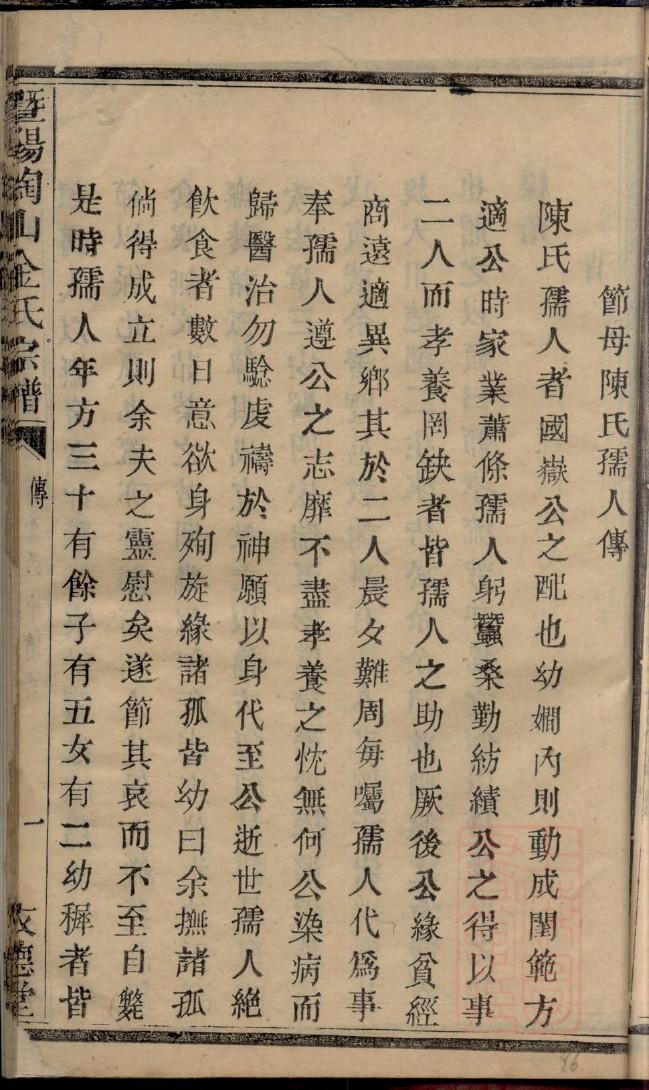 節母陳氏孺人傳
陳氏孺人者國嶽公之配也幼嫺內則動成閨範方
適公時家業蕭條孺人躬蠶桑勤紡績公之得以事
二人而孝養罔缺者皆孺人之助也厥後公緣貧經
商遠適異鄉其於二人晨夕難周每囑孺人代爲事
奉孺人遵公之志靡不盡孝養之忱無何公染病而
歸醫治勿騐虔禱於神願以身代至公逝世孺人絕
飲食者數日意欲身殉旋緣諸孤皆幼曰余撫諸孤
倘得成立則余夫之靈慰矣遂節其哀而不至自斃
是時孺人年方三十有餘子有五女有二幼穉者皆
暨陽陶山金氏宗譜
傳
一
德堂
96